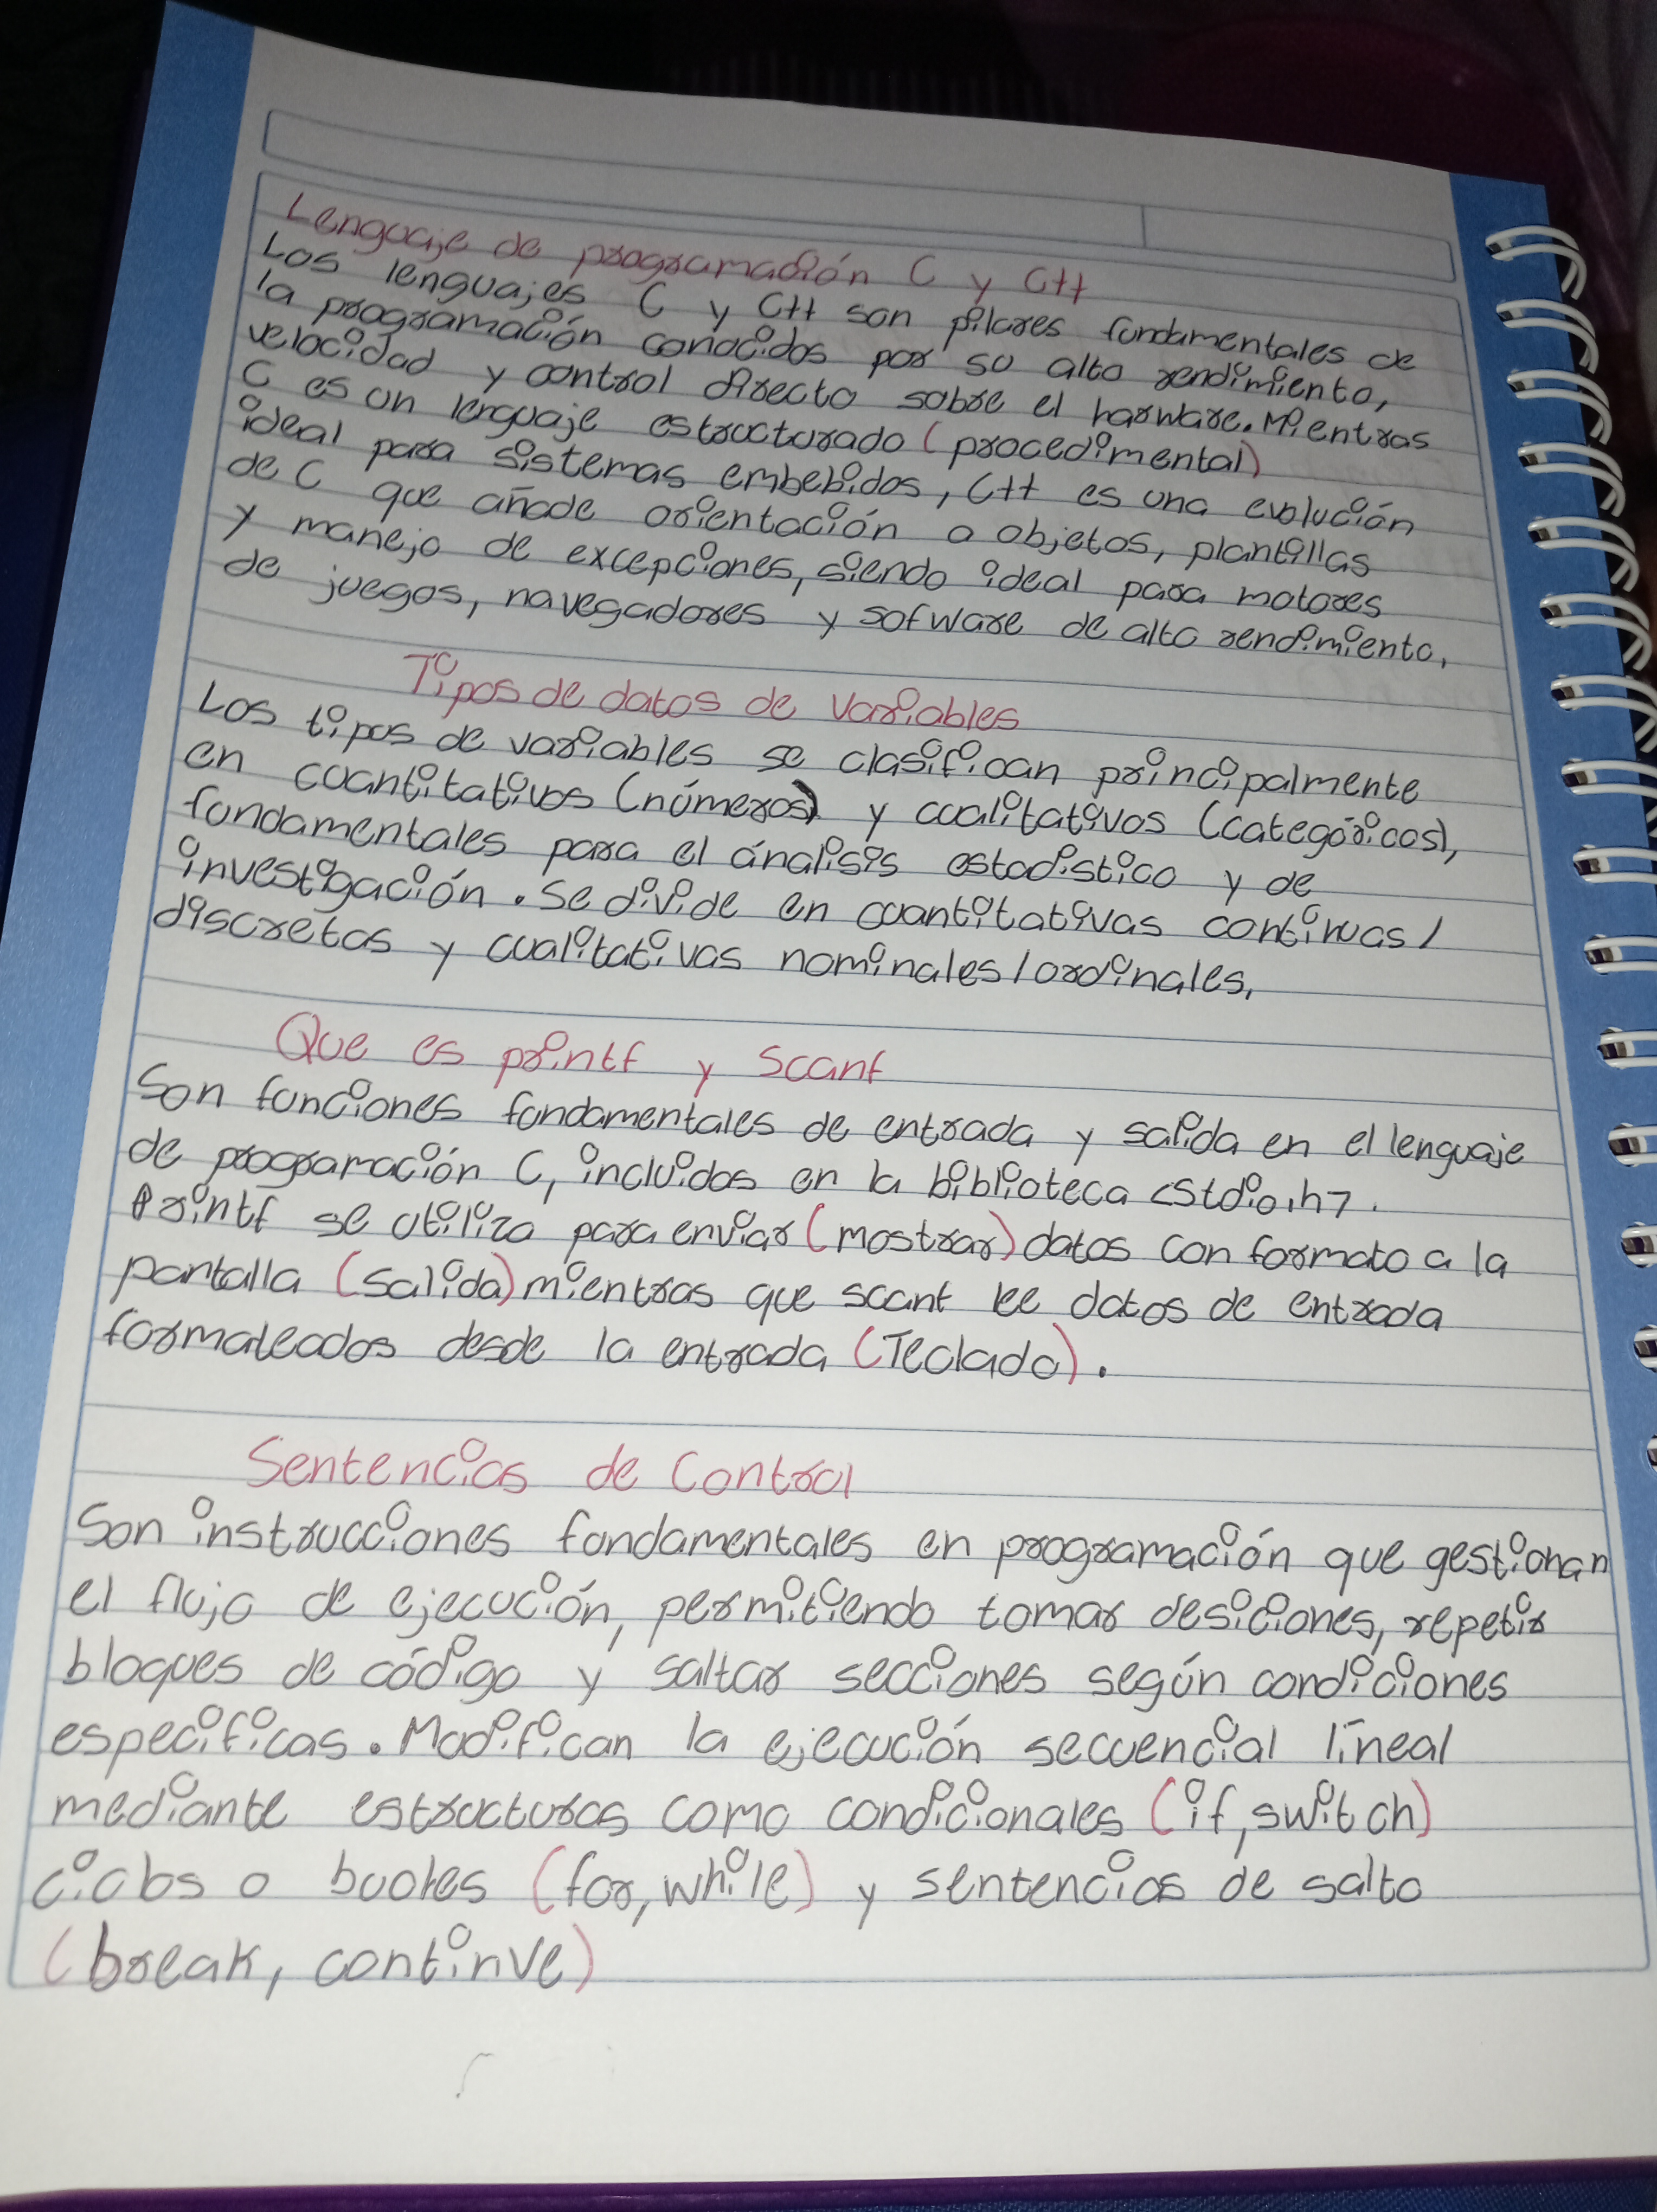 Lenguaje de programación C y C++
Los lenguajes C y C++ son pilares fundamentales de
la programación conocidos por su alto rendimiento,
velocidad y control directo sobre el harware. Mientras
C es un lenguaje estructurado (procedimental)
ideal para sistemas embebidos, C++ es una evolución
de C que añade orientación a objetos, plantillas
y manejo de excepciones, siendo ideal para motores
de juegos, navegadores y sofware de alto rendimiento,
Tipos de datos de variables
Los tipos de variables se clasifican principalmente
en cuantitativos (números) y cualitativos (categóricos),
fundamentales para el ánalisis estadistico y de
investigación. Se divide en cuantitativas continuas/
discretas y cualitativas nominales/ordinales,
Que es printf y Scanf
Son funciones fundamentales de entrada y salida en el lenguaje
de programación C, incluidos en la biblioteca <Stdio.h>.
Printf se utiliza para enviar (mostrar) datos con formato a la
pantalla (salida) mientras que scanf lee datos de entrada
formateados desde la entrada (Teclado).
Sentencias de Control
Son instrucciones fundamentales en programación que gestionan
el flujo de ejecución, permitiendo tomar desiciones, repetir
bloques de código y saltar secciones según condiciones
especificas. Modifican la ejecución secuencial líneal
mediante estructuras como condicionales (if, switch)
ciclos o bucles (for, while) y sentencias de salto
(break, continue)